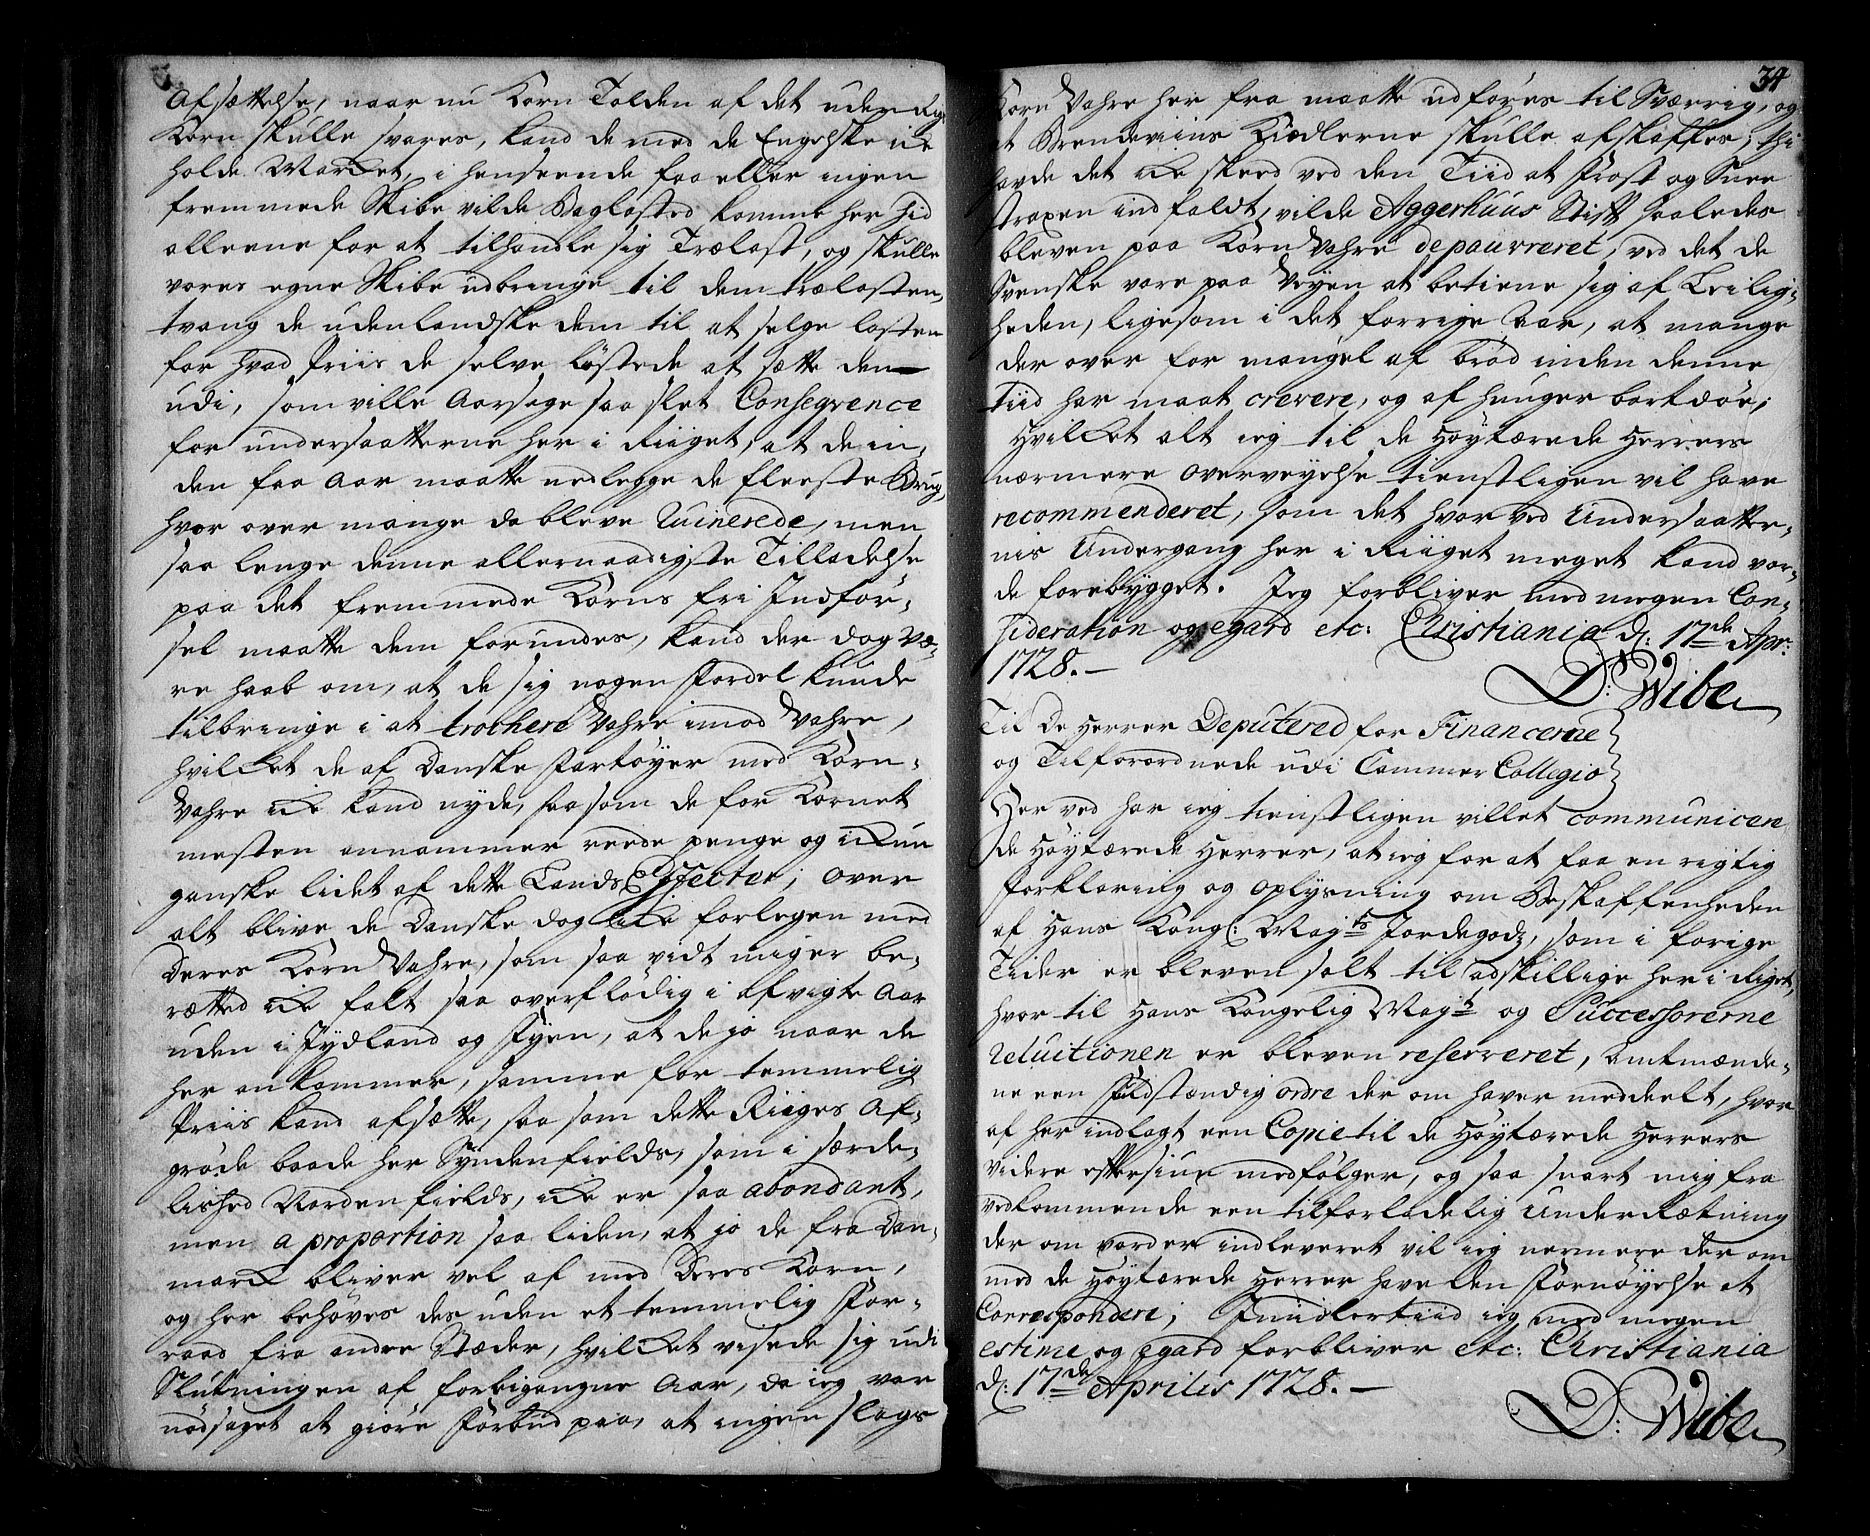 Afsættelse, naar nu Korn Tolden af det udenrigs
Korn skulle svares, kand de med de Engelske icke
holde Marcket, i henseende faa eller ingen
fremmede Skibe vilde Baglasted komme her hid
alleene for at tilhandle sig Trælast, og skulle
vores egne Skibe udbringe til dem trælasten,
tvang de udenlandske dem til at selge lasten
for hvad Priis de selve løstede at sætte den
udi, som ville Aarsage saa slet Conseqvence
for undersaatterne her i Riiget, at de in-
den faa Aar maatte nedlegge de fleeste Brug,
hvor over mange da bleve Ruinerede, men
saa lenge denne allernaadigste Tilladelse
paa det fremmede Korns fri Indfør-
sel maatte dem forundes, kand der dog væ-
re haab om, at de sig nogen Fordel kunde
tilbringe i at trochere Vahre imod Vahre,
hvilcket de af Danske Fartøyer med Korn-
Vahre icke kand nyde, saa som de for Kornet
mesten annammer reede penge og ickun
ganske lidet af dette Lands Effecter; over
alt blive de Danske dog icke forlegen med
Deres Korn Vahre, som saa vidt mig er be-
rætted icke falt saa overflødig i afvigte Aar
uden i Jydland og Fyen, at de jo naar de
her ankommer, samme for temmelig
Priis kand afsætte, saa som dette Riiges Af-
grøde baade her Syndenfields, som i særde-
lished Nordenfields, icke er saa abondant,
men a proportion saa liden, at jo de fra Dan-
marck bliver vel af med Deres Korn,
og her behøves des uden et temmelig For-
raad fra andre Stæder, hvilcket visede sig udi
Slutningen af forbigangne Aar, da ieg var
nødsaget at giøre Forbud paa, at ingen slags
34
Korn Vahre her fra maatte udføres til Sverrig, og
at Brendeviins Kiedlerne skulle afskaffes; thi
havde det icke skeed ved den Tiid at Frost og Snee
straxen indfaldt, vilde Aggerhuus Stift saaledes
bleven paa Korn Vahre depauvreret, ved det de
Svenske vare paa Veyen at betiene sig af Leilig-
heden, ligesom i det forrige Aar, at mange
der over for mangel af brød inden denne
Tiid har maat crevere, og af hunger bortdøe;
hvilcket alt ieg til de Høytærede Herrers
nærmere overveyelse tienstligen vil have
recommenderet, som det hvor ved Undersaatter-
nis Undergang her i Riiget meget kand vor-
de forebygget. Jeg forbliver med megen Con-
sideration og egard etc: Christiania d: 17de Apr:
1728.—
D: Wibe
Til De Herrer Deputered for Financerne
og Tilforordnede udi Cammer Collegio
Her ved har ieg tienstligen villet communicere
de Høytærede Herrer, at ieg for at faa en rigtig
Forklaring og oplysning om Beskaffenheden
af Hans Kongl: Mayts Jordegods, som i forige
Tider er bleven solt til adskillige her i Riget,
hvor til Hans Kongelig Mayts og Successorerne
Reluitionen er bleven reserveret, Amtmænde-
ne een fuldstændig ordre der om haver meddeelt, hvor
af her indlagt een Copie til de Høytærede Herrers
videre eftersiun medfølger, og saa snart mig fra
vedkommende een tilforladelig Underrætning
der om vorder indleveret vil ieg nermere der om
med de Høytærede Herrer have den Fornøyelse at
Correspondere; Imidlertiid ieg med megen
estime og egard forbliver etc: Christiania
d: 17de Aprilis 1728.—
D: Wibe